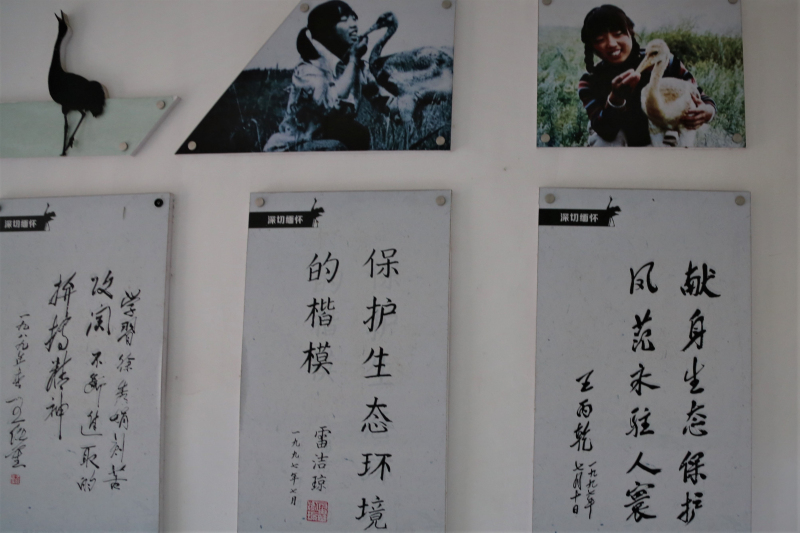 深切缅怀
学習徐秀娟刻苦
攻关不断进取的
拼搏精神
深切缅怀
保护生态环境
的楷模
雷洁琼
一九九七年七月
深切缅怀
献身生态保护
风范永驻人寰
王丙乾
一九九七年
七月十日